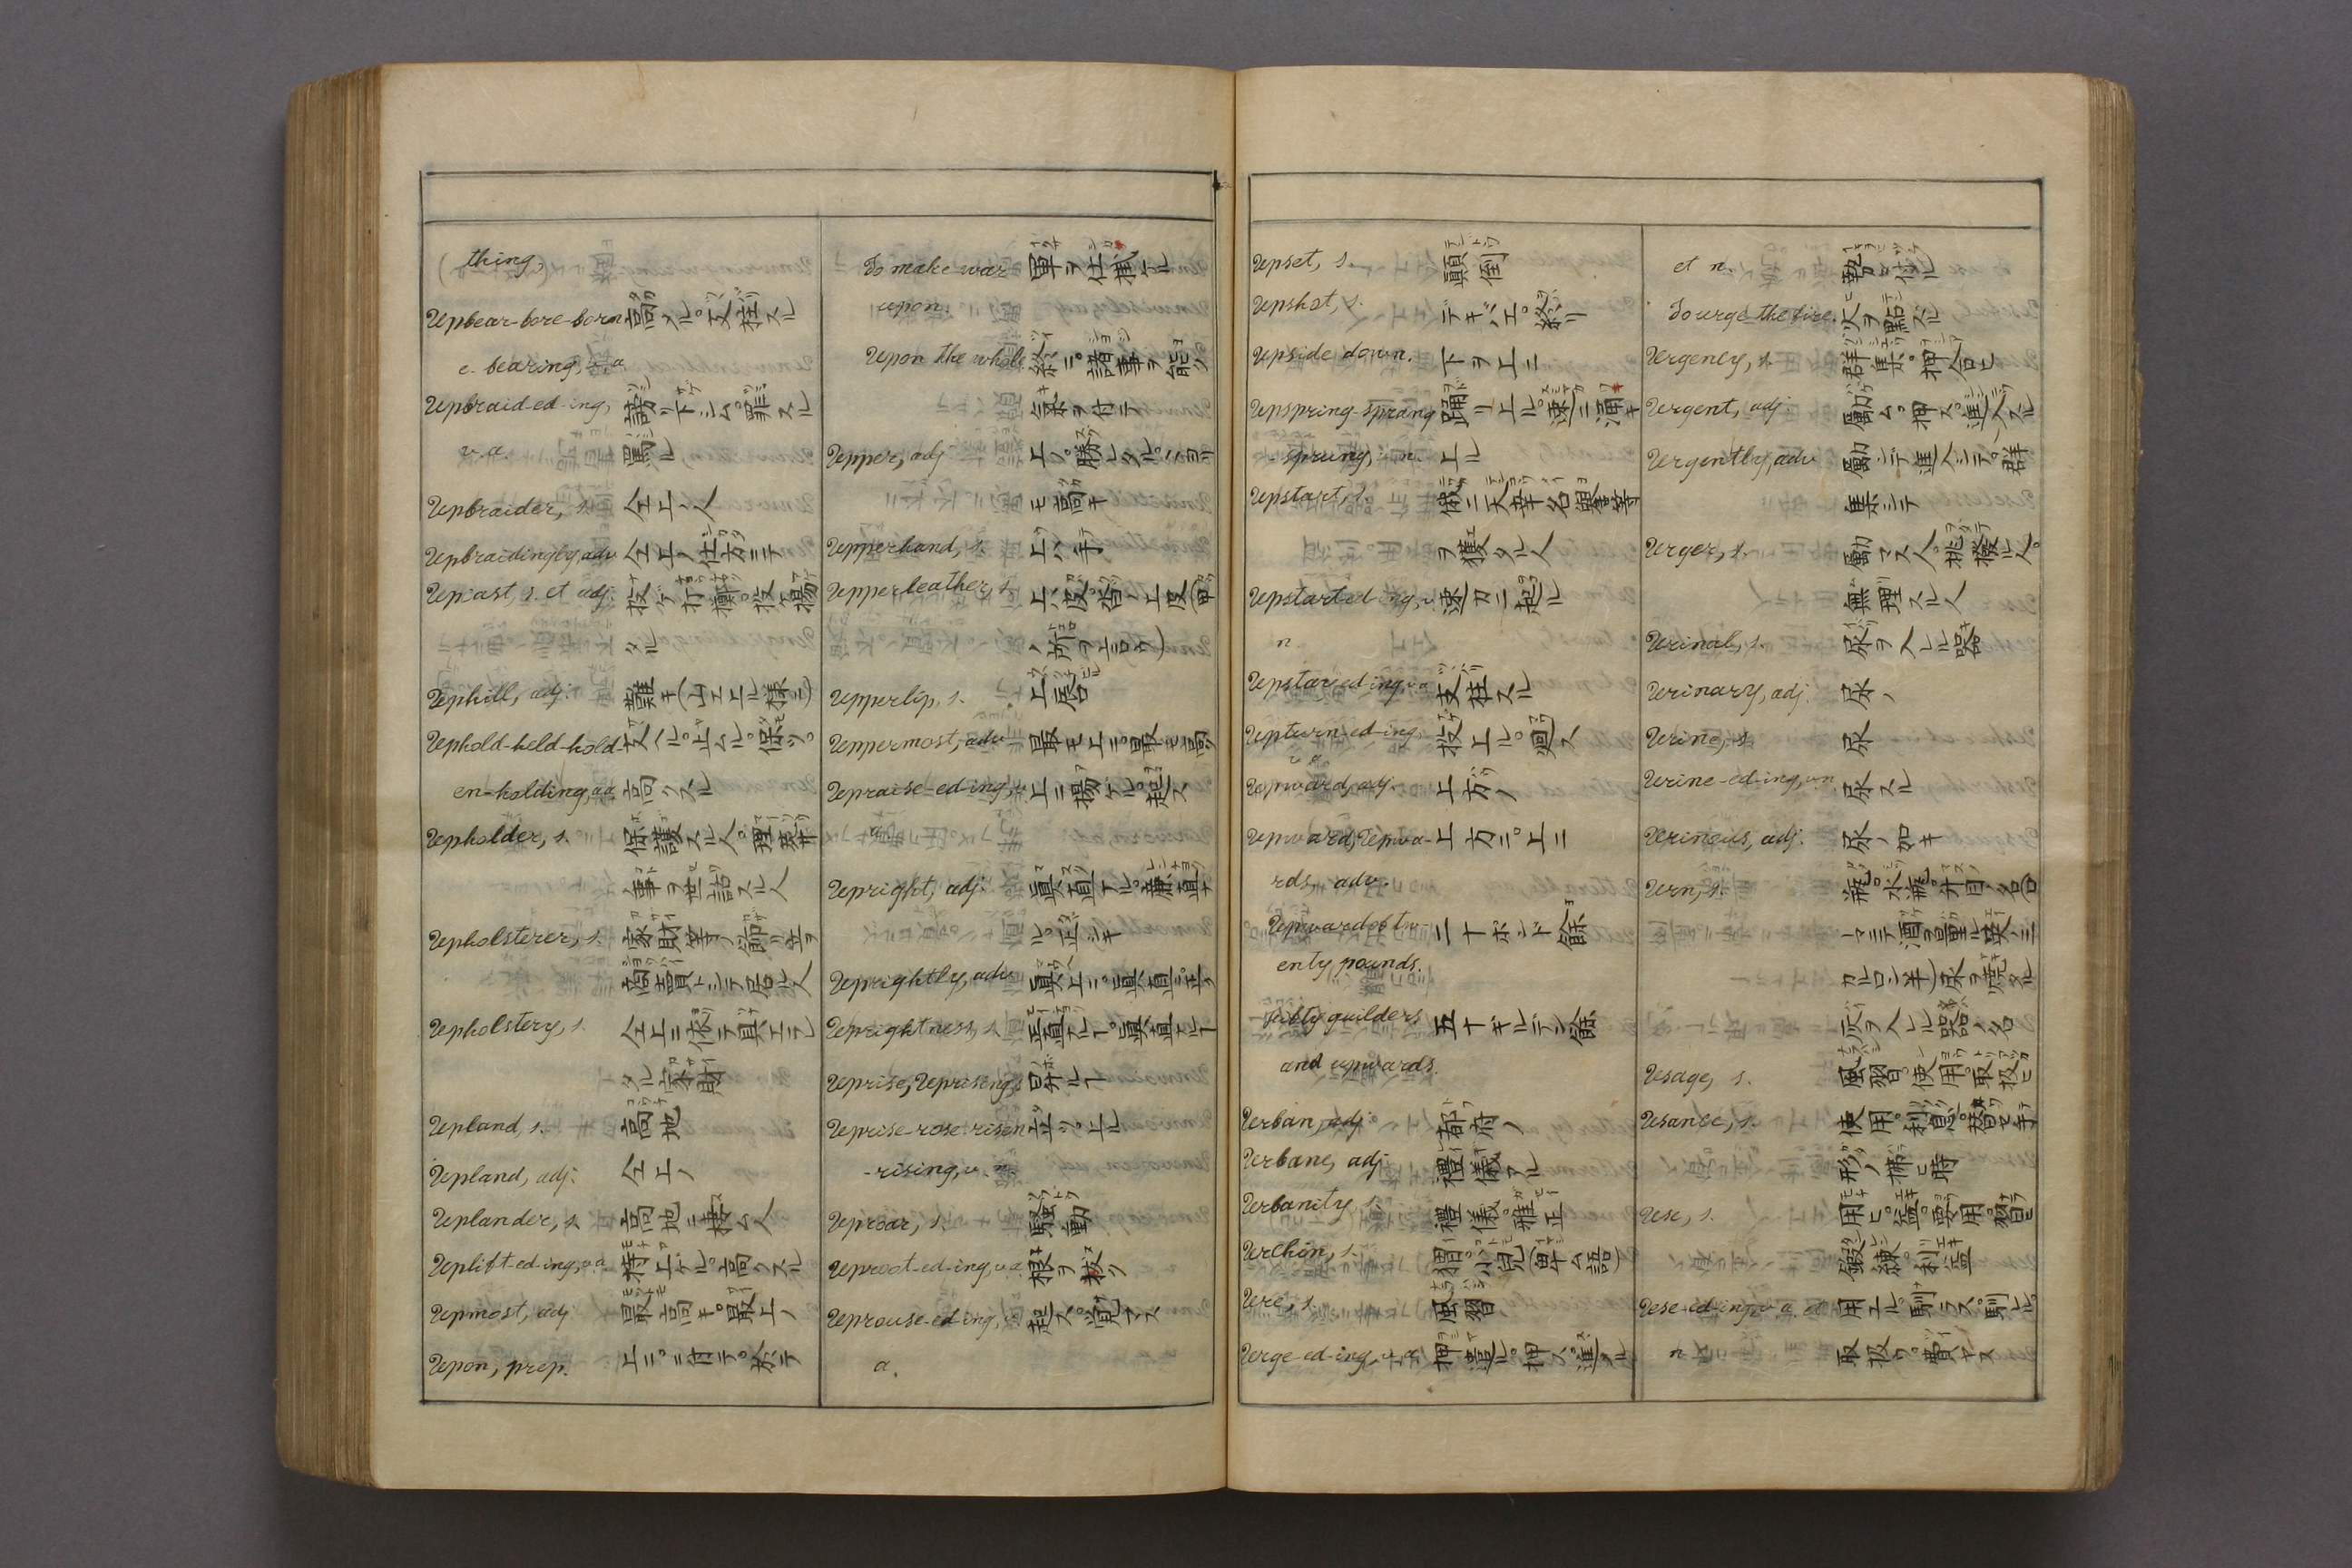 thing,
Upbear-bore-born 高クル。支柱スル
e-bearing, v.a.
Upbraid-ed-ing, 謗リ下シム。罪スル
v.a. 罵ル
Upbraider, s. 仝上ノ人
Upbraidingly, adv 仝上ノ仕方ニテ
Upcast, s. et adj. 投ゲ打擲。投ゲ揚
タル
Uphill, adj. 難キ(山エ上ル様ニ)
Uphold-held-hold- 支ヘル。止ムル。保ツ。
en-holding, v.a. 高クスル
Upholder, s. 保護スル人。埋葬ノ
事ヲ世話スル人
Upholsterer, s. 家財等ノ飾リ立ヲ
商賣トシテ居ル人
Upholstery, s. 仝上ニ依テ具エラレ
タル家財
Upland, s. 高地
Upland, adj. 仝上ノ
Uplander, s. 高地ニ棲ム人
Uplift-ed-ing, v.a. 持上ゲル。高クスル
Upmost, adj. 最モ高キ。最上ノ
Upon, prep. 上ニ。ニ付テ。於テ
To make war 軍ヲ仕掛ケル
upon.
Upon the whole 終ニ。諸事ヲ能ク
気ヲ付テ
Upper, adj 上ノ。勝レタル。ヨリ
モ高キ
Upperhand, s. 上ハ手
Upperleather, s. 上皮。沓ノ上皮(甲
ノ所ヲ言フ)
Upperlip, s. 上唇
Uppermost, adv 最モ上ニ。最モ高ク
Upraise-ed-ing, v. 上ニ揚ゲル。起ス
a.
Upright, adj. 真直ナル。廉直ナ
ル。正シキ
Uprightly, adv 真上ニ。真直ニ。正ク
Uprightness, s. 正直ナルヿ。真直ナルヿ
Uprise, Uprising, s 昇ルヿ
Uprise-rose-risen 立ツ。上ル
-rising, v.n.
Uproar, s. 騒動
Uproot-ed-ing, v.a. 根ヲ抜ク
Uprouse-ed-ing, v. 起ス。覚マス
a.
Upset, s. 顛倒
Upshot, s. デキバエ。終リ
Upside down. 下ヲ上ニ
Upspring-sprang 踊リ上ル。速ニ涌キ
-sprung, v.n. 上ル
Upstart, s. 俄ニ天幸名譽等
ヲ獲タル人
Upstart-ed-ing, v. 速カニ起ル
n.
Upstay-ed-ing, v.a 支柱スル
Upturn-ed-ing, 投上ル。廻ス
v.a.
Upward, adj. 上方ノ
Upward, Upwa- 上方ニ。上ニ
rds, adv.
Upward of tw- 二十ポンド餘
enty pounds.
Fifty guilders 五十ギルデン餘
and upwards.
Urban, adj. 都府ノ
Urbane, adj. 禮儀アル
Urbanity, s. 禮儀。雅正
Urchin, s. 猬。小兒(卑ム語)
Ure, s. 風習
Urge-ed-ing, v.a. 押遣ル。押ス。進メル
et n.
To urge the fire. 火ヲ點ズル
Urgency, s. 群集。押合ヒ
Urgent, adj.
Urgently, adv
集シテ
Urger, s. 勵マス人。挑撥ル人。
無理スル人
Urinal, s. 尿ヲ入レル器
Urinary, adj. 尿ノ
Urine, s. 尿
Urine-ed-ing, v.n 尿スル
Urinous, adj. 尿ノ如キ
Urn, s. 瓶。水瓶。升目ノ名(
灰ヲ入レル器ノ名
Usage, s. 風習。使用。取扱ヒ
Usance, s. 使用。利息。替セ手
形ノ拂ヒ時
Use, s. 用ヒ。益。要用。習ヒ
鍛練。利益
Use-ed-ing, v.a. et 用エル。馴ラス。馴ヒル。
n 取扱フ。費ヤス